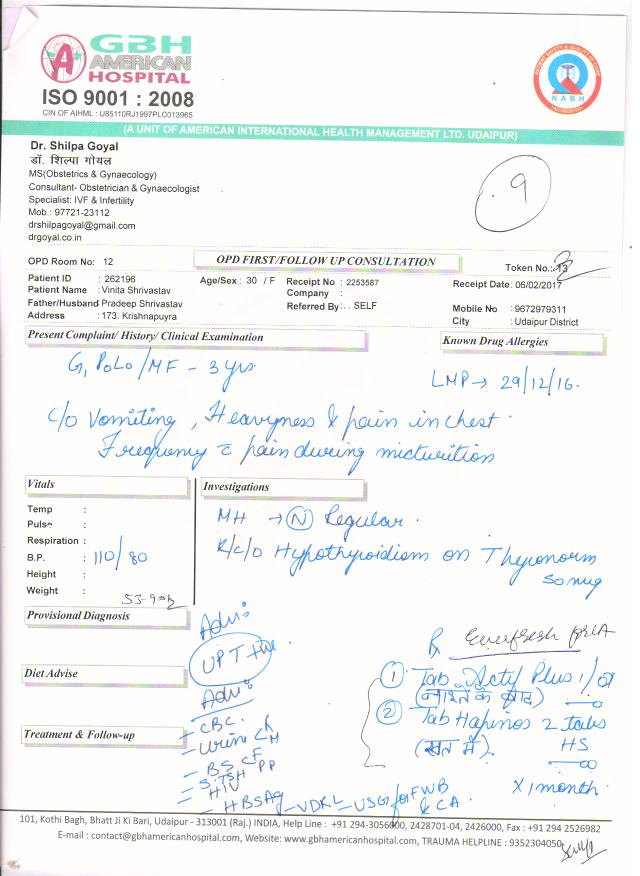 GBH
AMERICAN
HOSPITAL
ISO 9001 : 2008
CIN OF AIHML : U85110RJ1997PLC013965
NABH
(A UNIT OF AMERICAN INTERNATIONAL HEALTH MANAGEMENT LTD. UDAIPUR)
Dr. Shilpa Goyal
डॉ. शिल्पा गोयल
MS(Obstetrics & Gynaecology)
Consultant- Obstetrician & Gynaecologist
Specialist: IVF & Infertility
Mob.: 97721-23112
drshilpagoyal@gmail.com
drgoyal.co.in
9
OPD Room No: 12
OPD FIRST/FOLLOW UP CONSULTATION
Token No.: 13
Patient ID : 262196 Age/Sex : 30 / F Receipt No : 2253587 Receipt Date: 06/02/2017
Patient Name : Vinita Shrivastav Company :
Father/Husband Pradeep Shrivastav Referred By: . SELF Mobile No : 9672979311
Address : 173. Krishnapuyra City : Udaipur District
Present Complaint/ History/ Clinical Examination
Known Drug Allergies
G1 P0L0 / MF - 3 yrs
LMP → 29/12/16.
c/o Vomiting, Heavyness & pain in chest.
Frequency c̄ pain during micturition
Vitals
Investigations
Temp :
Pulse :
Respiration :
B.P. : 110/80
Height :
Weight :
MH → (N) Regular.
K/c/o Hypothyroidism on Thyronorm
50 mg
Provisional Diagnosis
Adv:
UPT +ve
Diet Advise
Adv:
Treatment & Follow-up
- CBC.
- Urine
- BS
- S. TSH PP
- HIV
- HBsAg - VDRL - USG for FWB
& CA.
Rx
① Tab Plus 1/OD
(नाश्ते के बाद)
② Tab 2 tabs
HS
x 1 month.
101, Kothi Bagh, Bhatt Ji Ki Bari, Udaipur - 313001 (Raj.) INDIA, Help Line : +91 294-3056000, 2428701-04, 2426000, Fax : +91 294 2526982
E-mail : contact@gbhamericanhospital.com, Website: www.gbhamericanhospital.com, TRAUMA HELPLINE : 9352304050